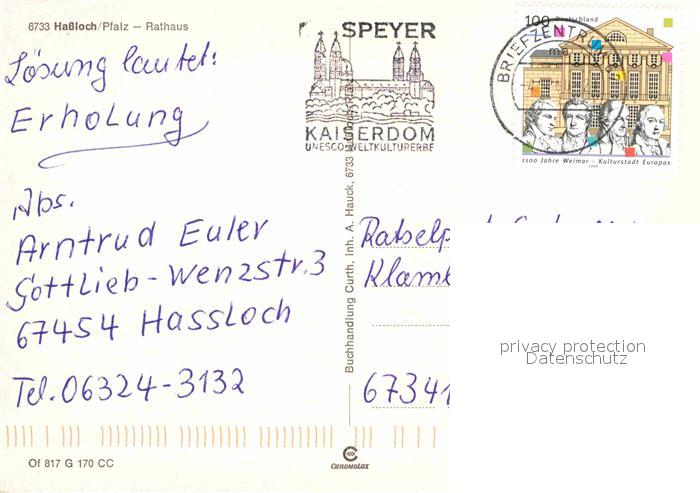 6733 Haßloch/Pfalz — Rathaus
Lösung lautet:
Erholung
Abs.
Arntrud Euler
Gottlieb-Wenzstr.3
67454 Hassloch
Tel. 06324-3132
Of 817 G 170 CC
Buchhandlung Curth, Inh. A. Hauck, 6733 Haßloch/Pfalz
CHROMOLUX
SPEYER
KAISERDOM
UNESCO-WELTKULTURERBE
BRIEFZENTRUM
100 Deutschland
1100 Jahre Weimar - Kulturstadt Europas
1999
67341
privacy protection
Datenschutz